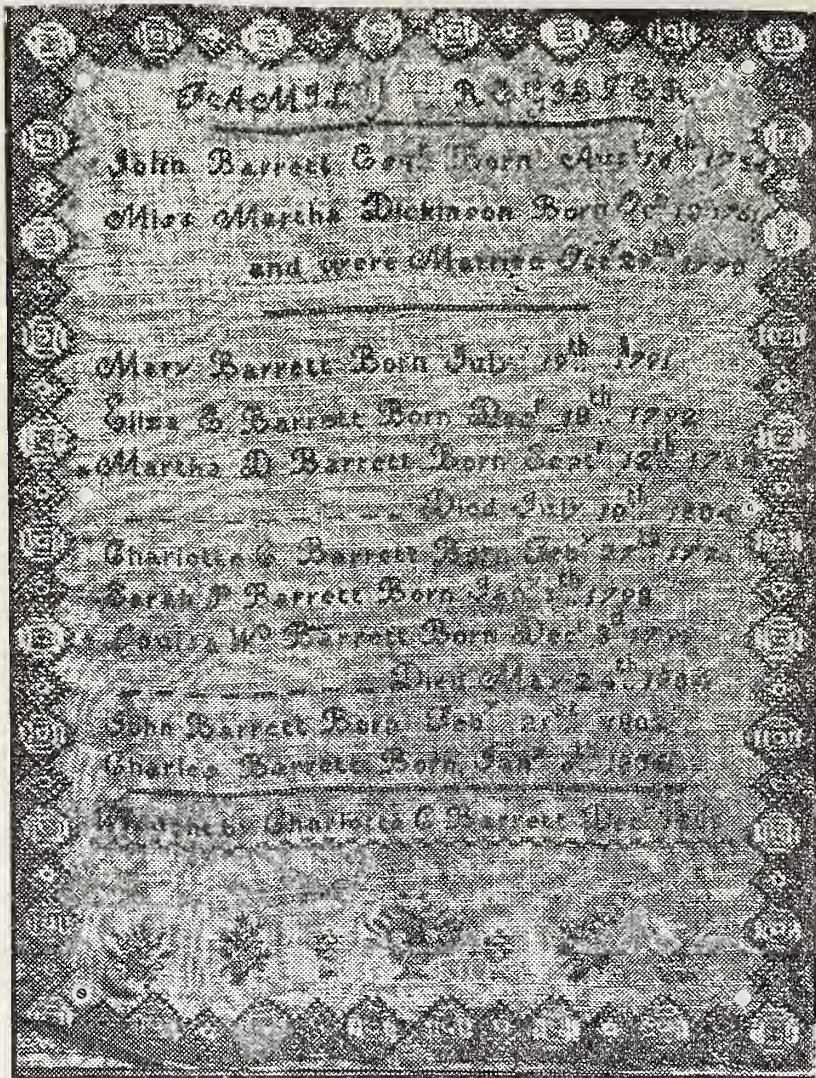 FAMILY REGISTER
John Barrett Esqr Born Augt
Miss Martha Dickinson Born Oct
and were Married Oct 1790
Mary Barrett Born July 19th 1791
Eliza E Barrett Born Decr 18th 1792
Martha D Barrett Born Septr 12th
Died July 10th 1804
Charlotte C Barrett Born Feby
Sarah P Barrett Born Jany 1th 1798
Louisa W Barrett Born Decr 3d
Died May 24th
John Barrett Born Feby 21st 1802
Charles Barrett Born Jany
Wrought by Charlotte C Barrett Decr